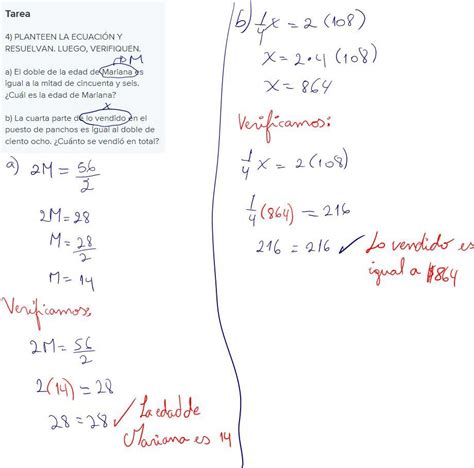 Tarea
4) PLANTEEN LA ECUACIÓN Y
RESUELVAN. LUEGO, VERIFIQUEN.
M
a) El doble de la edad de Mariana es
igual a la mitad de cincuenta y seis.
¿Cuál es la edad de Mariana?
x
b) La cuarta parte de lo vendido en el
puesto de panchos es igual al doble de
ciento ocho. ¿Cuánto se vendió en total?
a) 2M = 56/2
2M = 28
M = 28/2
M = 14
Verificamos:
2M = 56/2
2(14) = 28
28 = 28 ✓ La edad de
Mariana es 14
b) 1/4 x = 2 (108)
x = 2·4 (108)
x = 864
Verificamos:
1/4 x = 2(108)
1/4 (864) = 216
216 = 216 ✓ Lo vendido es
igual a $864